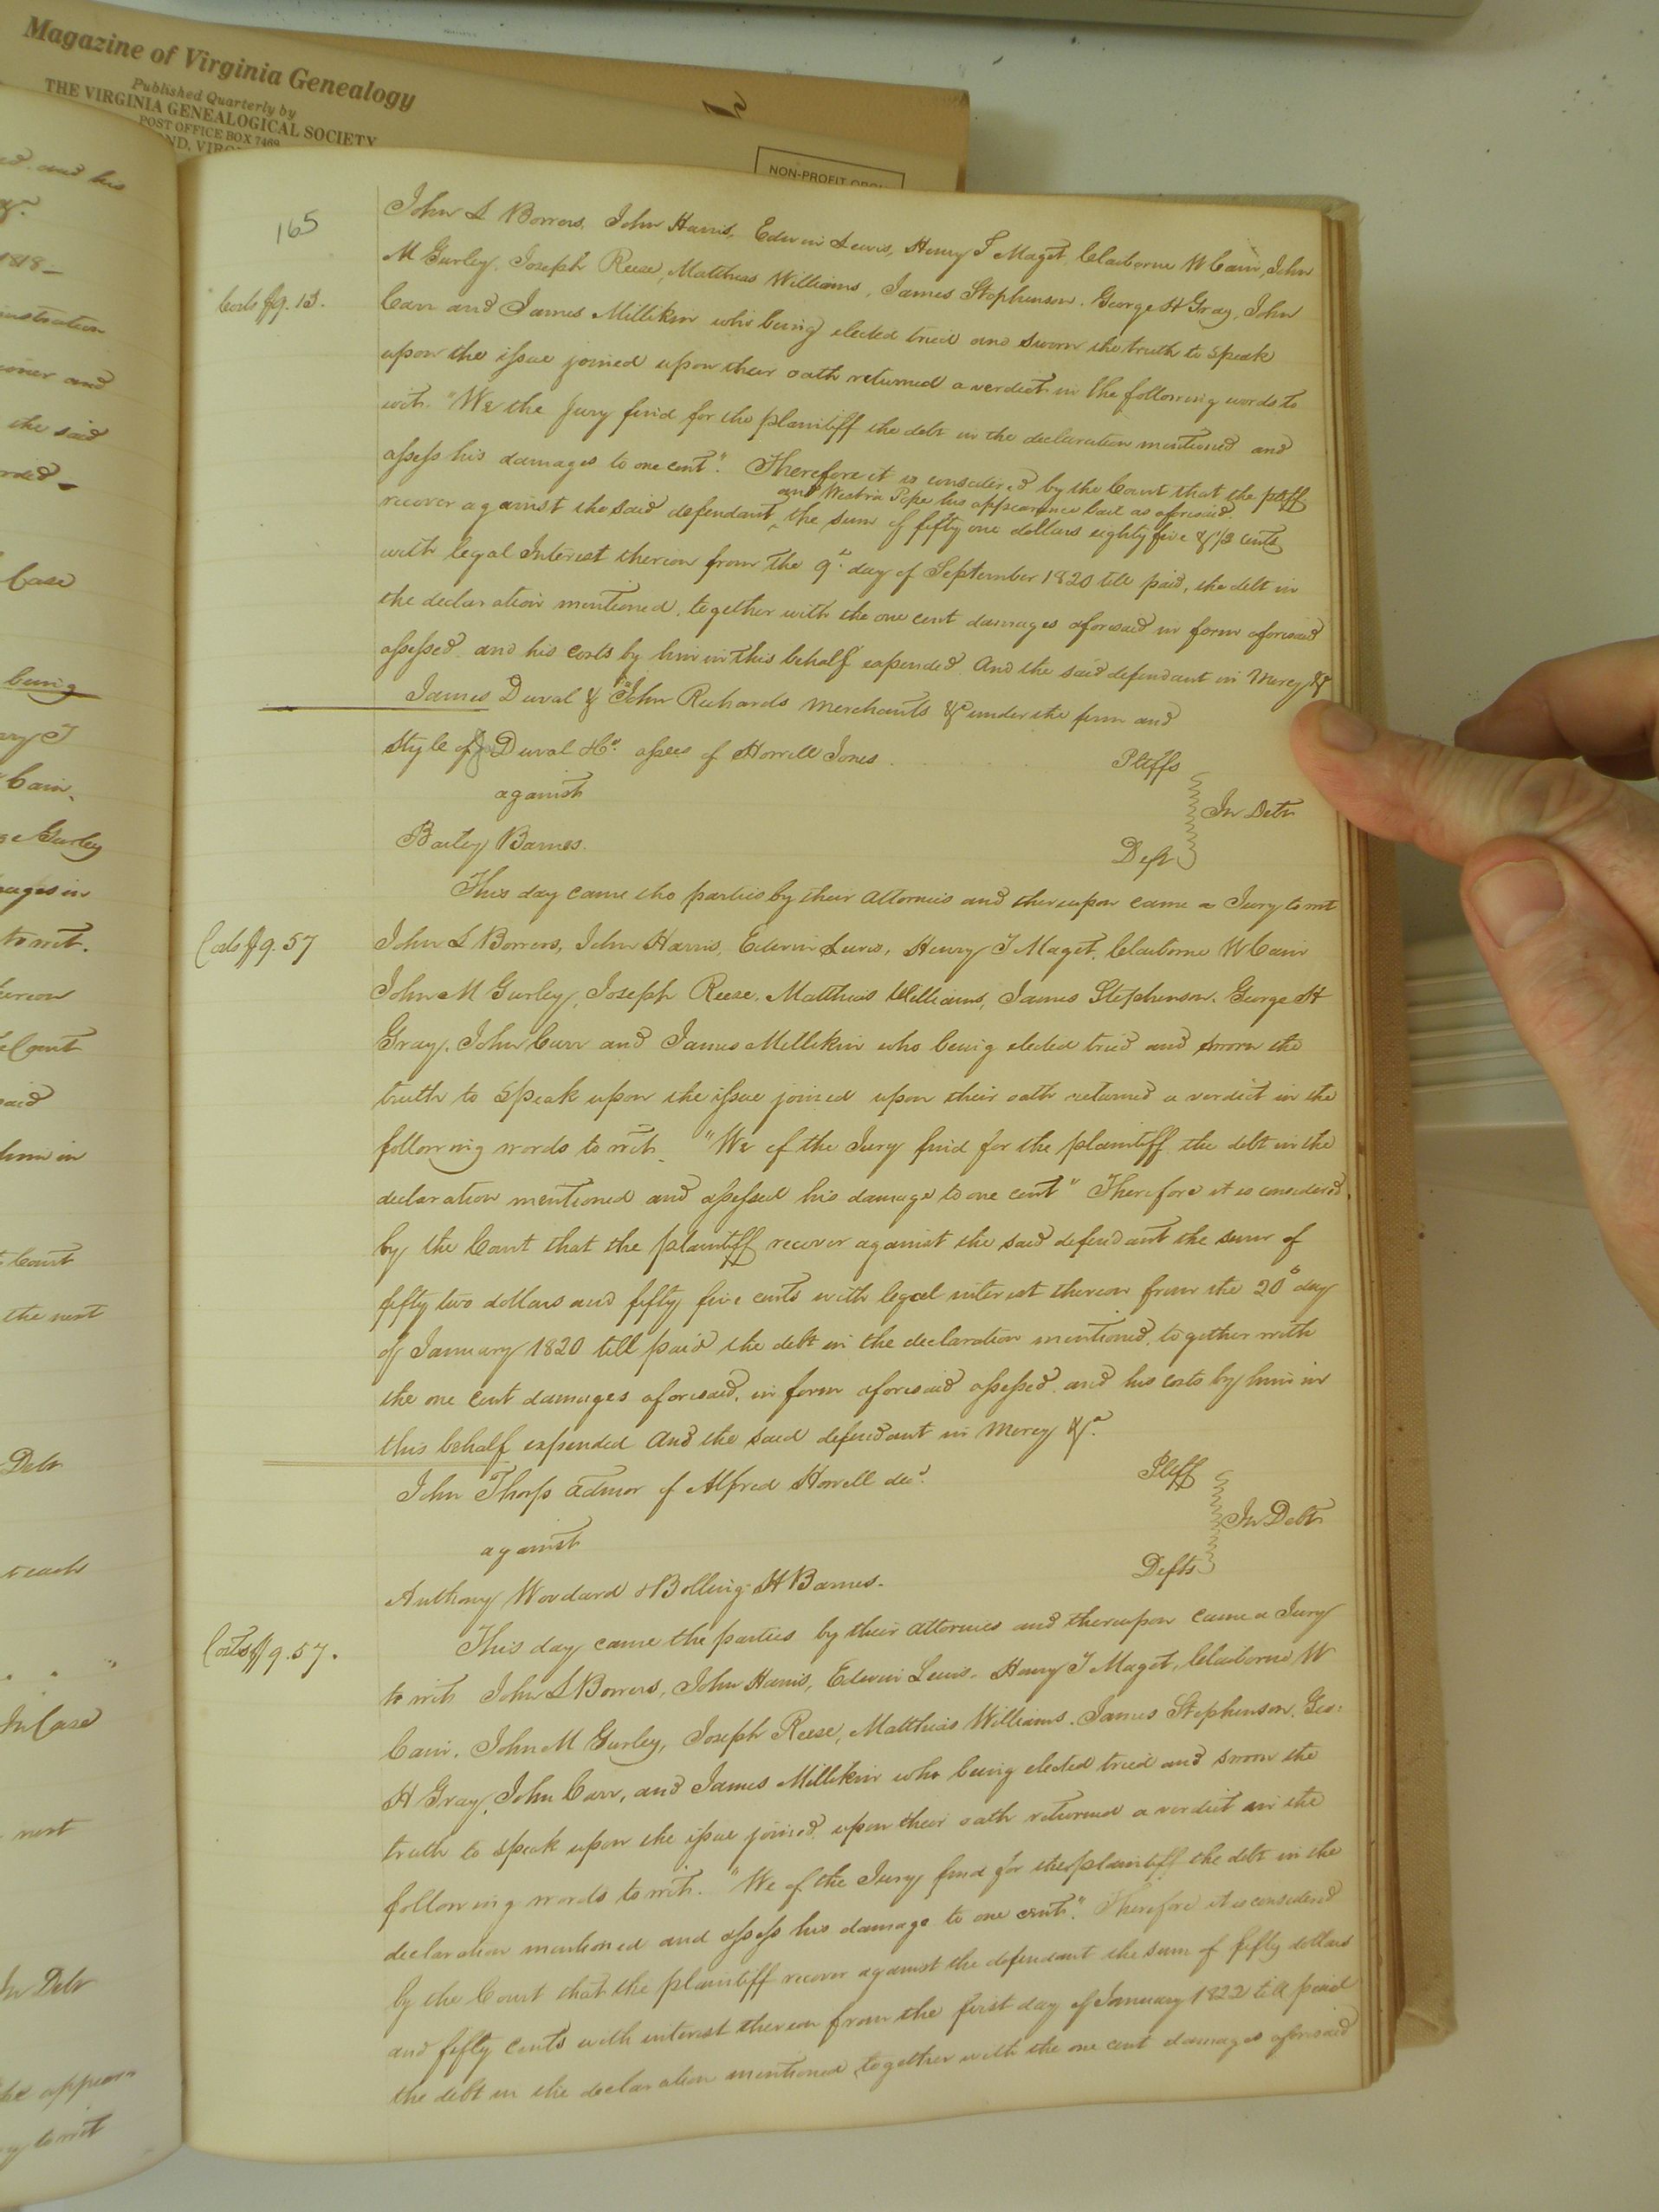 Magazine of Virginia Genealogy
Published Quarterly by
THE VIRGINIA GENEALOGICAL SOCIETY
POST OFFICE BOX 7469
NON-PROFIT ORG
and his
1818 -
the said
Case
being
Cain,
Gurley
to wit.
Court
said
him in
Court
the next
Debt
In Case
next
In Debt
appear
to wit
165
John S Borrers, John Harris, Edwin Lewis, Henry T Maget, Claiborne W Cain, John
M Gurley, Joseph Reese, Matthias Williams, James Stephenson, George H Gray, John
Costs $9.13.
Carr and James Millikin who being elected tried and sworn the truth to speak
upon the issue joined upon their oath returned a verdict in the following words to
wit. "We the Jury find for the plaintiff the debt in the declaration mentioned and
assess his damages to one cent". Therefore it is considered by the Court that the pltff
and Westrin Pope his appearance bail as aforesaid
recover against the said defendant ^ the sum of fifty one dollars eighty five & 1/3 cents
with legal Interest thereon from the 9th day of September 1820 till paid, the debt in
the declaration mentioned, together with the one cent damages aforesaid in form aforesaid
assessed and his costs by him in this behalf expended And the said defendant in Mercy &
James Duval & John Richards Merchants &c under the firm and
style of J Duval & Co. assee of Howell Jones Pltffs
against In Debt
Barley Barnes. Deft
This day came the parties by their attornies and thereupon came a Jury to wit
Costs $9.57
John S Borrers, John Harris, Edwin Lewis, Henry T Maget, Claiborne W Cain
John M Gurley, Joseph Reese, Matthias Williams, James Stephenson, George H
Gray, John Carr and James Millikin who being elected tried and sworn the
truth to speak upon the issue joined upon their oath returned a verdict in the
following words to wit "We of the Jury find for the plaintiff the debt in the
declaration mentioned and assessed his damage to one cent" Therefore it is considered
by the Court that the plaintiff recover against the said defendant the sum of
fifty two dollars and fifty five cents with legal interest thereon from the 20th day
of January 1820 till paid the debt in the declaration mentioned, together with
the one cent damages aforesaid, in form aforesaid assessed, and his costs by him in
this behalf expended And the said defendant in Mercy &c
John Thorp admor of Alfred Howell decd. Pltff
against In Debt
Anthony Woodard & Bolling H Barnes. Defts
This day came the parties by their attornies and thereupon came a Jury
Costs $9.57.
to wit John S Borrers, John Harris, Edwin Lewis, Henry T Maget, Claiborne W
Cain, John M Gurley, Joseph Reese, Matthias Williams, James Stephenson, Geo:
H Gray, John Carr, and James Millikin who being elected tried and sworn the
truth to speak upon the issue joined upon their oath returned a verdict in the
following words to wit. "We of the Jury find for the plaintiff the debt in the
declaration mentioned and assess his damage to one cent." Therefore it is considered
by the Court that the plaintiff recover against the defendant the sum of fifty dollars
and fifty cents with interest thereon from the first day of January 1822 till paid
the debt in the declaration mentioned, together with the one cent damages aforesaid